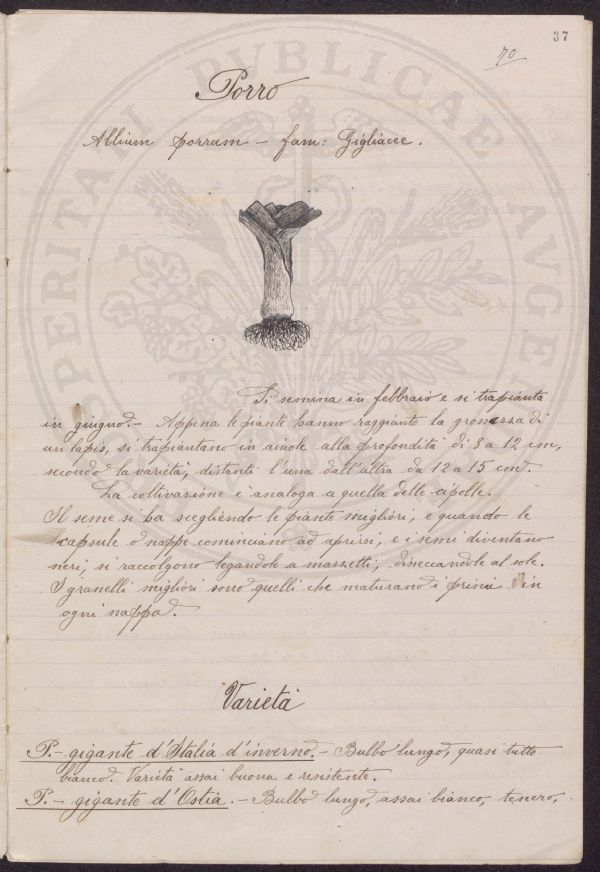 37
70
Porro
Allium porrum - fam: Gigliacee.
Si semina in febbraio e si trapianta
in giugno. - Appena le piante hanno raggiunto la grossezza di
un lapis, si trapiantano in aiuole alla profondità di 8 a 12 cm,
secondo la varietà, distanti l'una dall'altra da 12 a 15 cm.
La coltivazione è analoga a quella delle cipolle.
Il seme si ha scegliendo le piante migliori, e quando le
capsule o nappe cominciano ad aprirsi, e i semi diventano
neri, si raccolgono legandole a mazzetti, disseccandole al sole.
I granelli migliori sono quelli che maturano i primi in
ogni nappa.
Varietà
P. - gigante d'Italia d'inverno. - Bulbo lungo, quasi tutto
bianco. Varietà assai buona e resistente.
P. - gigante d'Ostia. - Bulbo lungo, assai bianco, tenero,
PUBLICAE